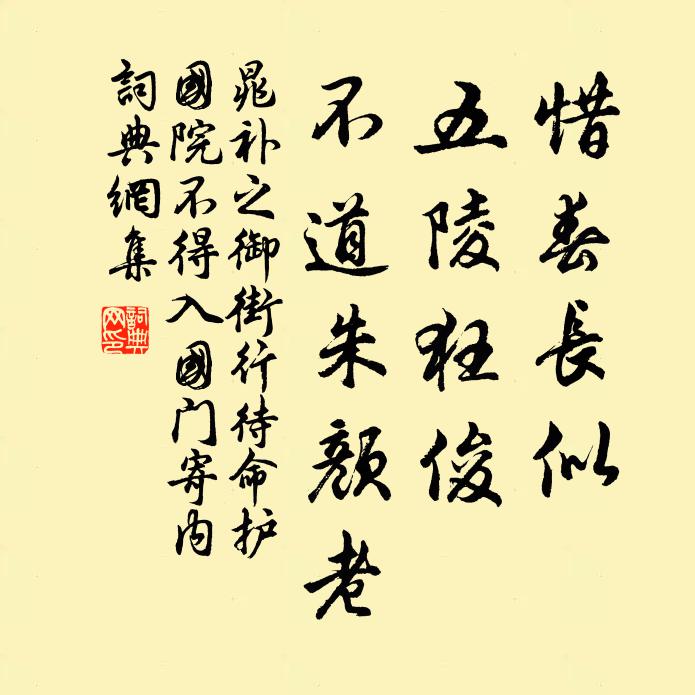 惜春長似
五陵狂俊
不道朱顔老
晁补之御街行待命护
國院不得入國门寄内
詞典網集
詞典
网印